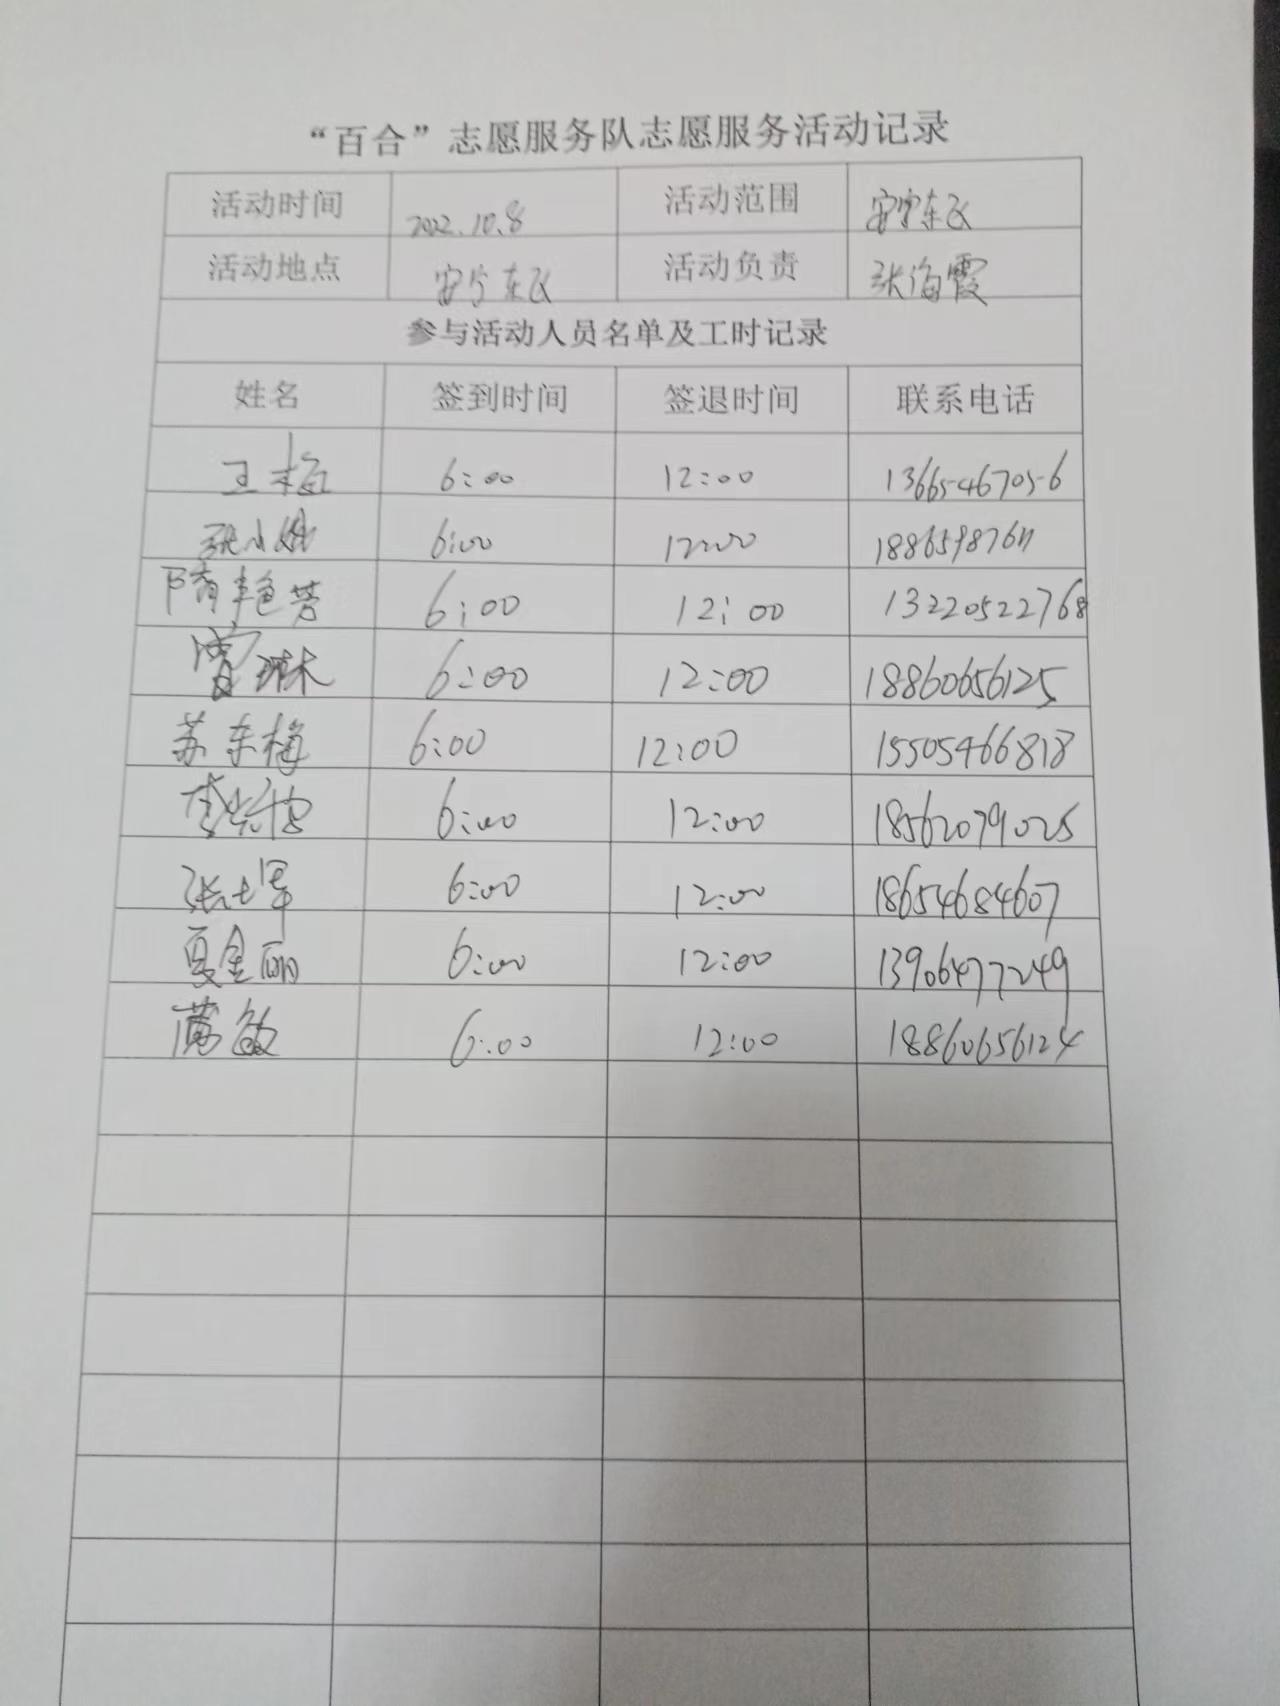 “百合”志愿服务队志愿服务活动记录
活动时间 2022.10.8 活动范围 安宁东区
活动地点 安宁东区 活动负责 张海霞
参与活动人员名单及工时记录
姓名 签到时间 签退时间 联系电话
王梅 6:00 12:00 13665467056
张小 6:00 12:00 18865987611
隋艳芳 6:00 12:00 13220522768
曹琳 6:00 12:00 18860656125
苏东梅 6:00 12:00 15505466818
李 6:00 12:00 18562079025
张军 6:00 12:00 18654684607
夏金丽 6:00 12:00 13906477249
敏 6:00 12:00 18860656124